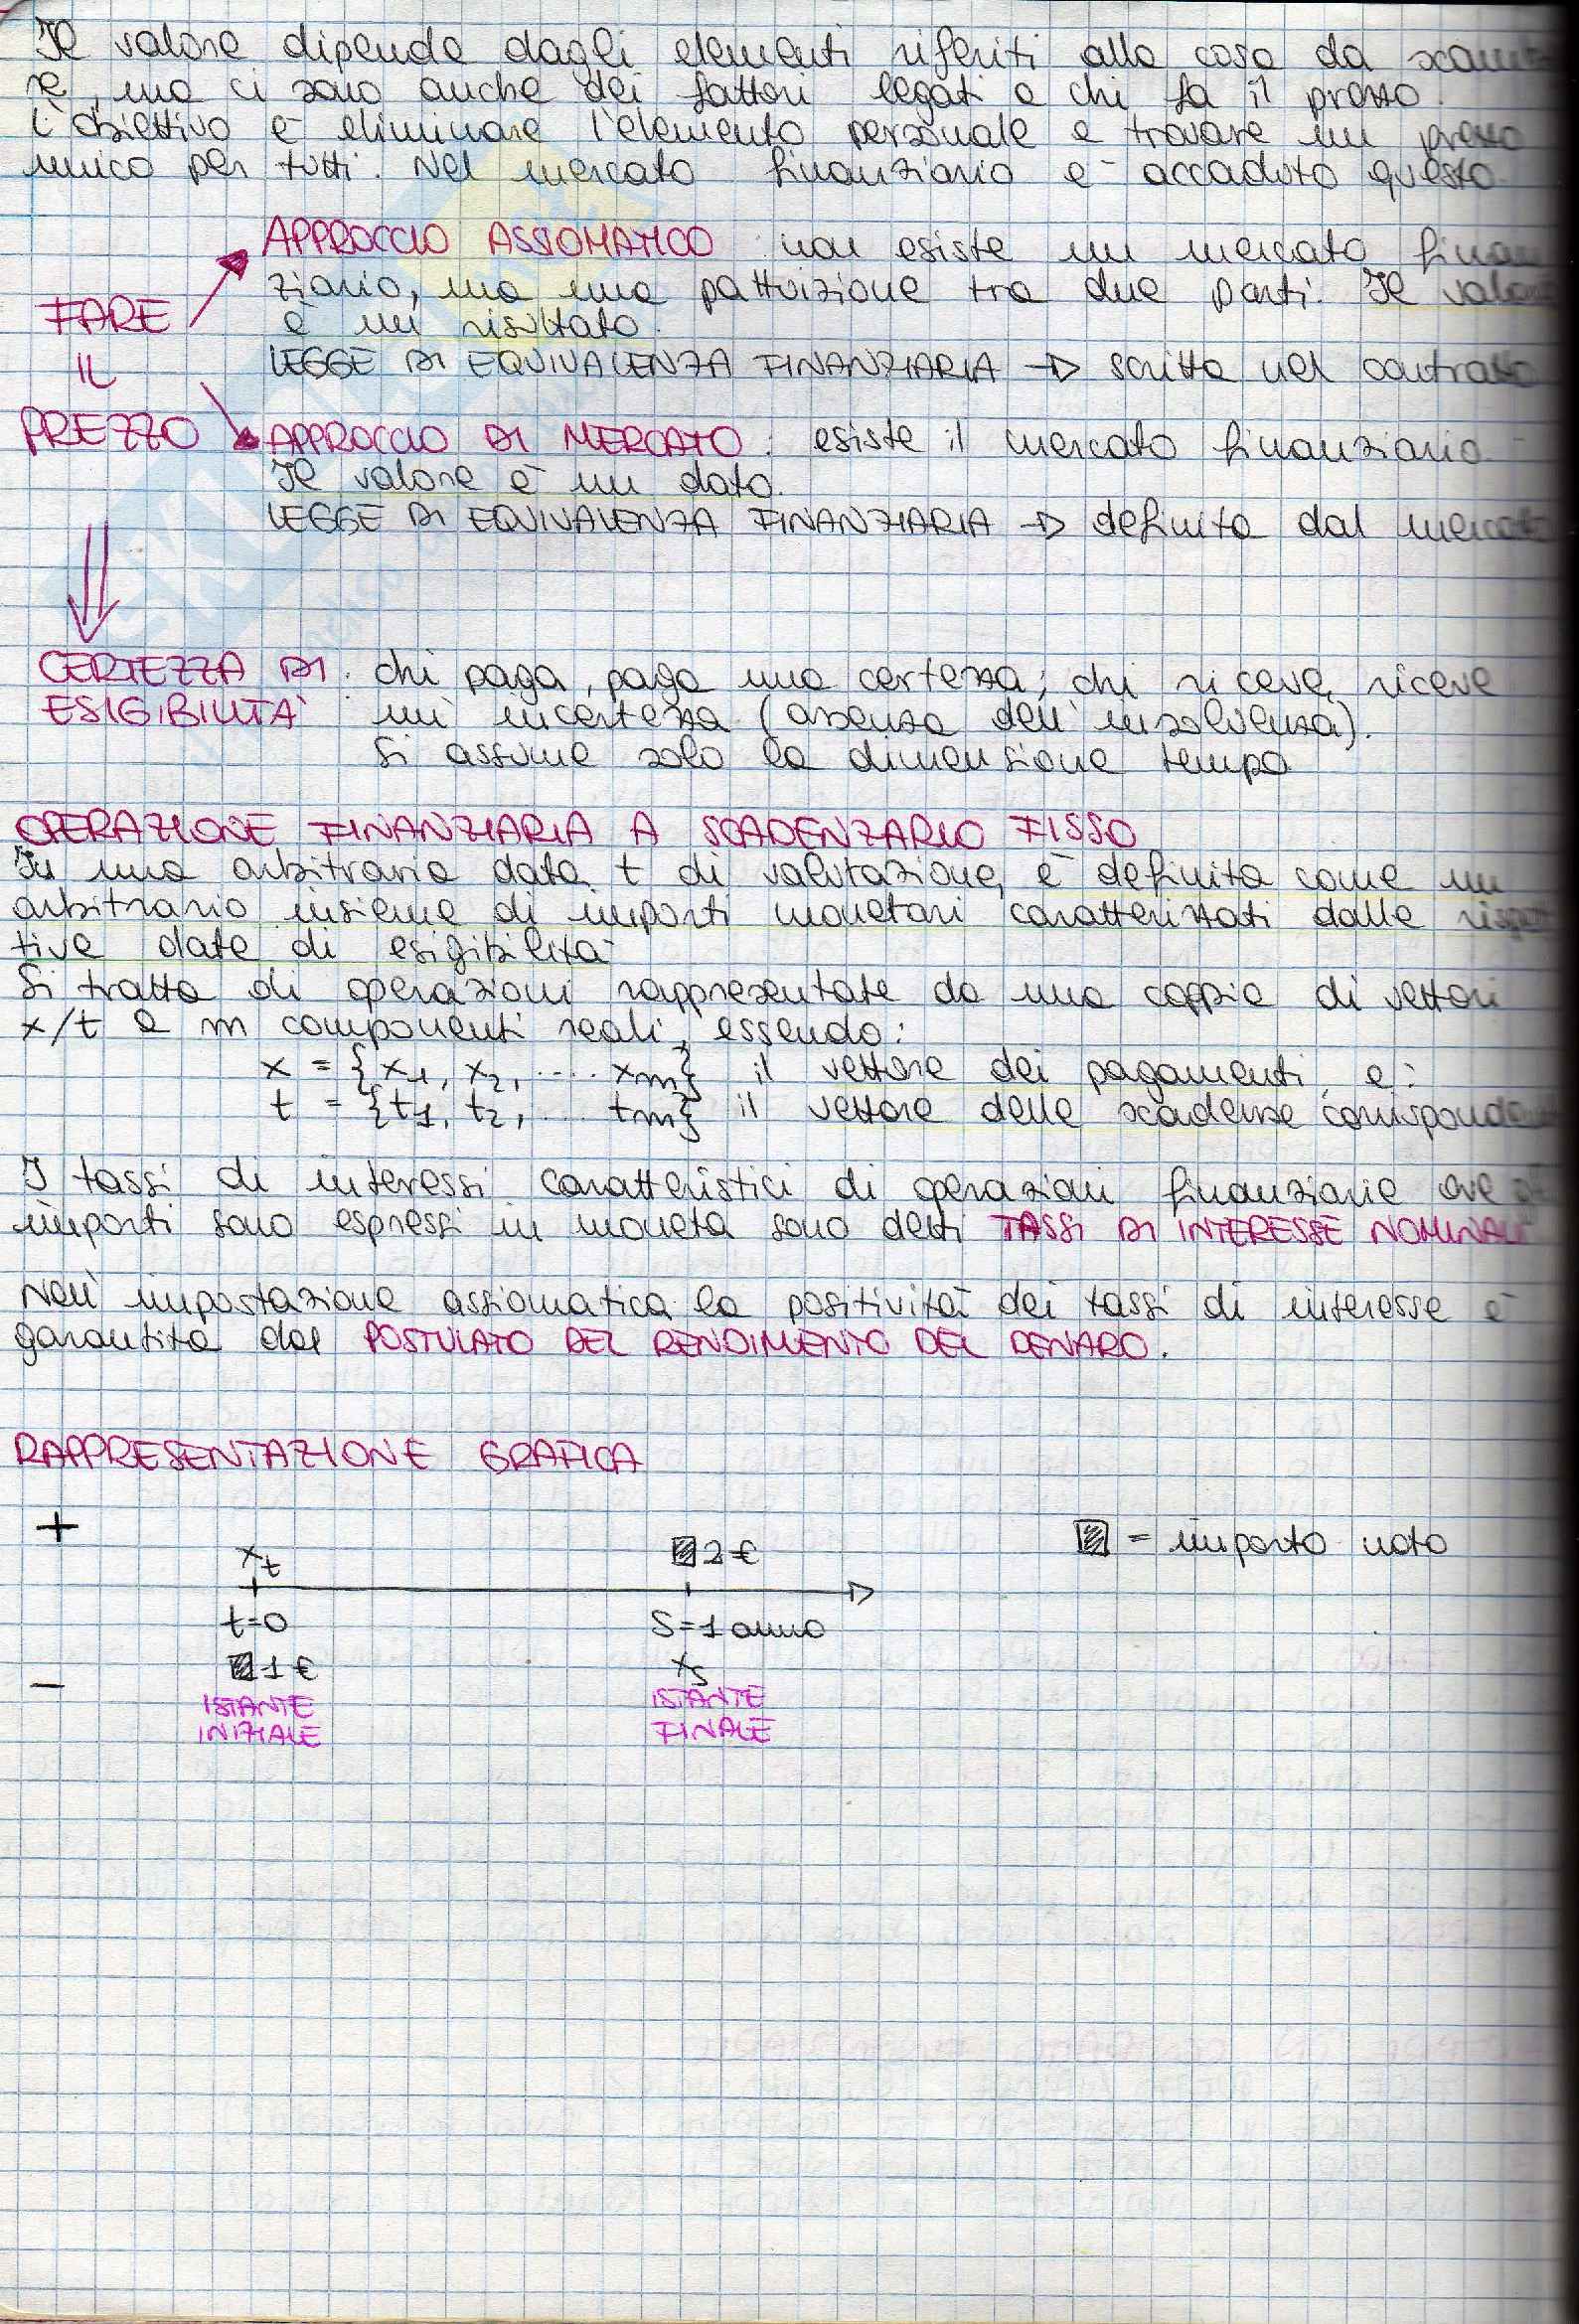 Il valore dipende dagli elementi riferiti alla cosa da scambia
re, ma ci sono anche dei fattori legati a chi fa il prezzo.
L'obiettivo è eliminare l'elemento personale e trovare un prezzo
unico per tutti. Nel mercato finanziario è accaduto questo.
APPROCCIO ASSIOMATICO: non esiste un mercato finan
ziario, ma una pattuizione tra due parti. Il valore
è un risultato.
LEGGE DI EQUIVALENZA FINANZIARIA → scritta nel contratto
FARE
IL
PREZZO
APPROCCIO DI MERCATO: esiste il mercato finanziario.
Il valore è un dato.
LEGGE DI EQUIVALENZA FINANZIARIA → definita dal mercato
CERTEZZA DI: chi paga, paga una certezza; chi riceve, riceve
ESIGIBILITÀ un'incertezza (assenza dell'insolvenza).
Si assume solo la dimensione tempo
OPERAZIONE FINANZIARIA A SCADENZARIO FISSO
In una arbitraria data t di valutazione, è definita come un
arbitrario insieme di importi monetari caratterizzati dalle rispet
tive date di esigibilità
Si tratta di operazioni rappresentate da una coppia di vettori
x/t a m componenti reali, essendo:
x = {x1, x2, .... xm} il vettore dei pagamenti, e:
t = {t1, t2, ... tm} il vettore delle scadenze corrispond
I tassi di interessi caratteristici di operazioni finanziarie ove
importi sono espressi in moneta sono detti TASSI DI INTERESSE NOMINALI
Nell'impostazione assiomatica la positività dei tassi di interesse è
garantita dal POSTULATO DEL RENDIMENTO DEL DENARO.
RAPPRESENTAZIONE GRAFICA
+
xt
2 €
= importo noto
t=0
S=1 anno
1 €
xs
−
ISTANTE
INIZIALE
ISTANTE
FINALE